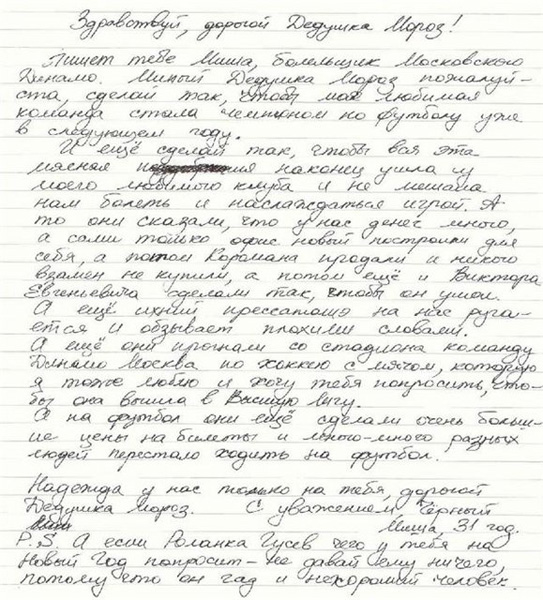 Здравствуй, дорогой Дедушка Мороз!
Пишет тебе Миша, болельщик Московского
Динамо. Милый Дедушка Мороз пожалуй-
ста, сделай так, чтобы моя любимая
команда стала чемпионом по футболу уже
в следующем году.
И ещё сделай так, чтобы вся эта
мясная наконец ушла из
моего любимого клуба и не мешала
нам болеть и наслаждаться игрой. А
то они сказали, что у нас денег много,
а сами только офис новый построили для
себя, а потом Коромана продали и никого
взамен не купили, а потом ещё и Виктора
Евгеньевича сделали так, чтобы он ушол.
А ещё ихний прессаташэ на нас руга-
ется и обзывает плохими словами.
А ещё они прогнали со стадиона команду
Динамо Москва по хоккею с мячом, которую
я тоже люблю и хочу тебя попросить, что-
бы она вышла в Высшую лигу.
А на футбол они ещё сделали очень больш-
ие цены на билеты и много-много разных
людей перестало ходить на футбол.
Надежда у нас только на тебя, дорогой
Дедушка Мороз. С уважением, Чёрный
Миша, 31 год.
P.S. А если Роланка Гусев чего у тебя на
Новый Год попросит - не давай ему ничего,
потому что он гад и нехороший человек.